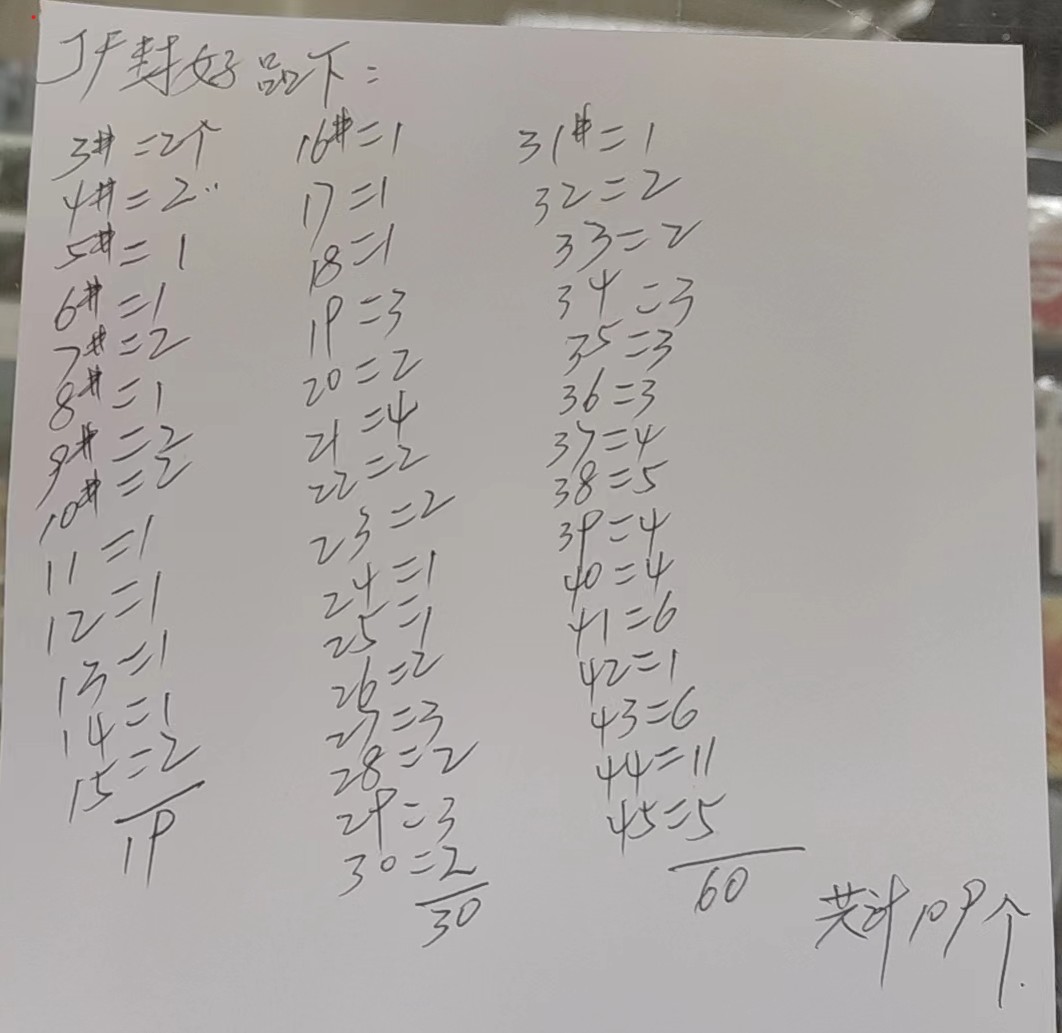 JF封好品下：
3#=2个
4#=2〃
5#=1
6#=1
7#=2
8#=1
9#=2
10#=2
11=1
12=1
13=1
14=1
15=2
19
16#=1
17=1
18=1
19=3
20=2
21=4
22=2
23=2
24=1
25=1
26=2
27=3
28=2
29=3
30=2
30
31#=1
32=2
33=2
34=3
35=3
36=3
37=4
38=5
39=4
40=4
41=6
42=1
43=6
44=11
45=5
60
共计109个.